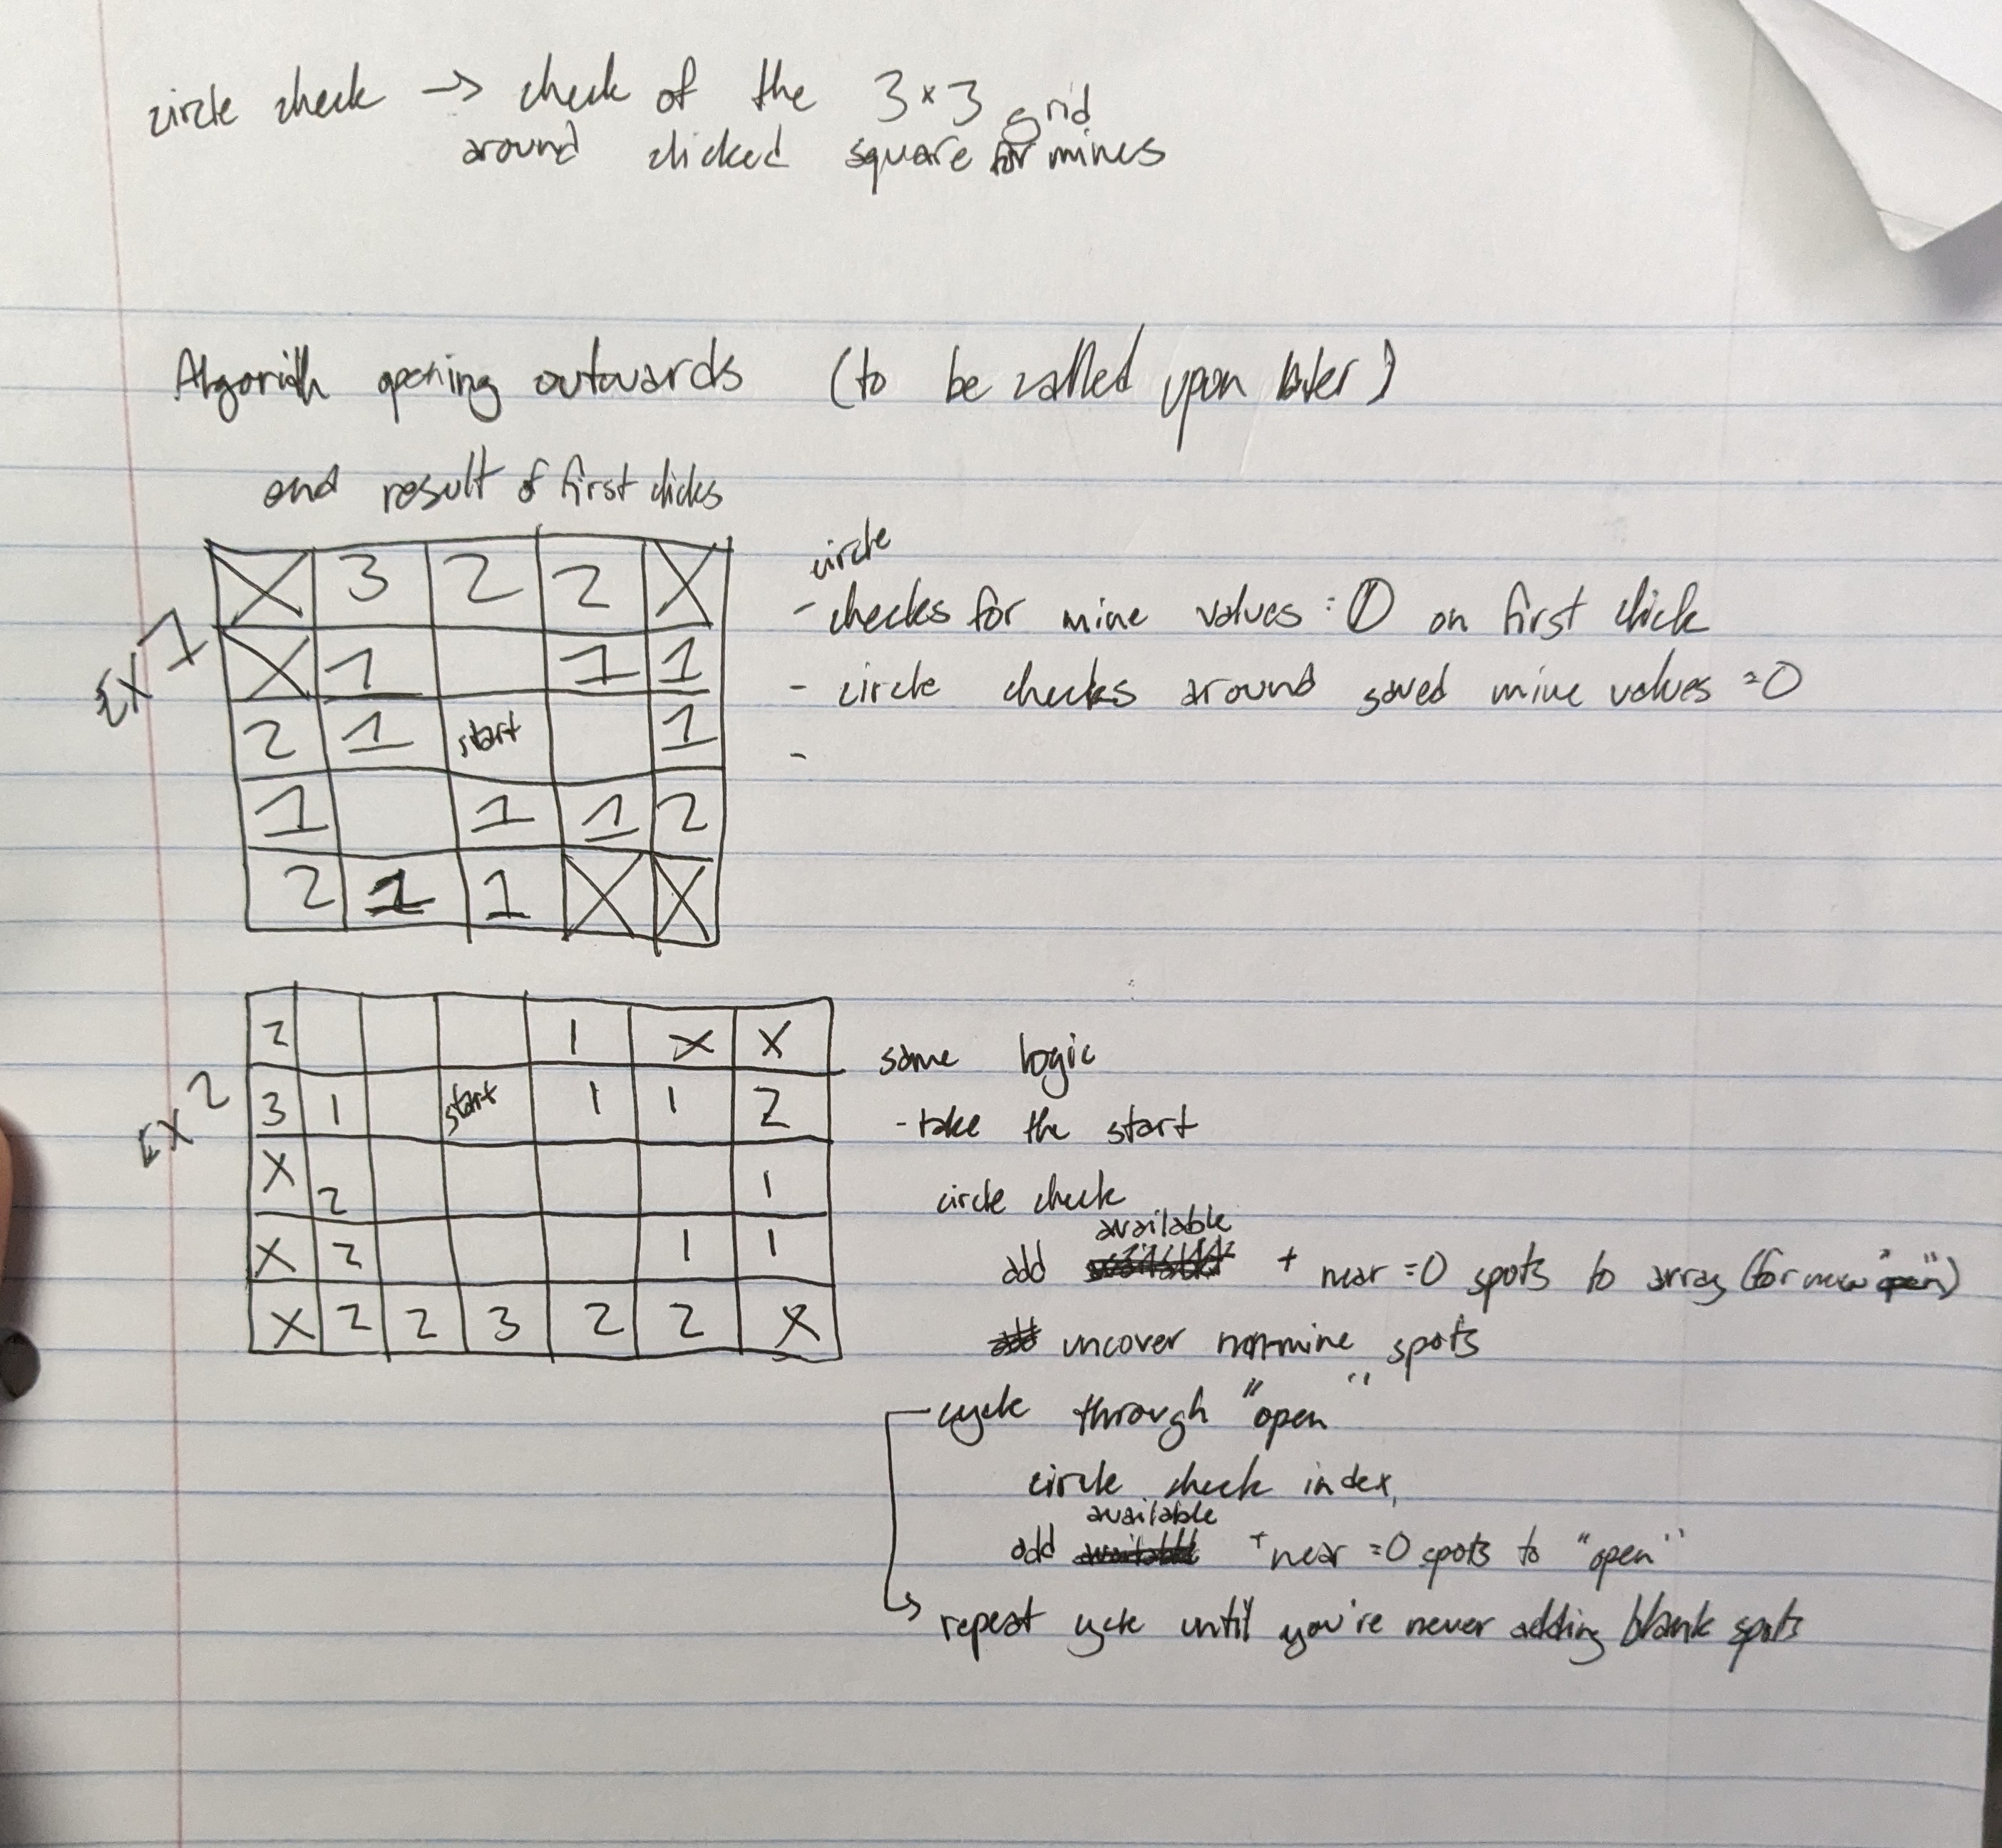 circle check → check of the 3×3 grid
around clicked square for mines
Algorith opening outwards (to be called upon later)
end result of first clicks
Ex 1
X 3 2 2 X
X 1 1 1
2 1 start 1
1 1 1 2
2 1 1 X X
circle
- checks for mine values = 0 on first click
- circle checks around saved mine values = 0
-
Ex 2
2 1 X X
3 1 start 1 1 2
X 2 1
X 2 1 1
X 2 2 3 2 2 X
same logic
- take the start
circle check
available
add + near = 0 spots to array (for new "open")
uncover non-mine spots
cycle through "open"
circle check index,
available
add + near = 0 spots to "open"
repeat cycle until you're never adding blank spots